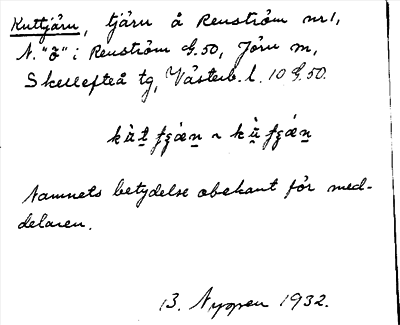 Kuttjärn, tjärn å Renström nr 1,
N. "ö" i Renström G.50, Jörn sn,
Skellefteå tg, Västerb. l. 10 G.50.
Namnets betydelse obekant för med-
delaren.
13. Nygren 1932.